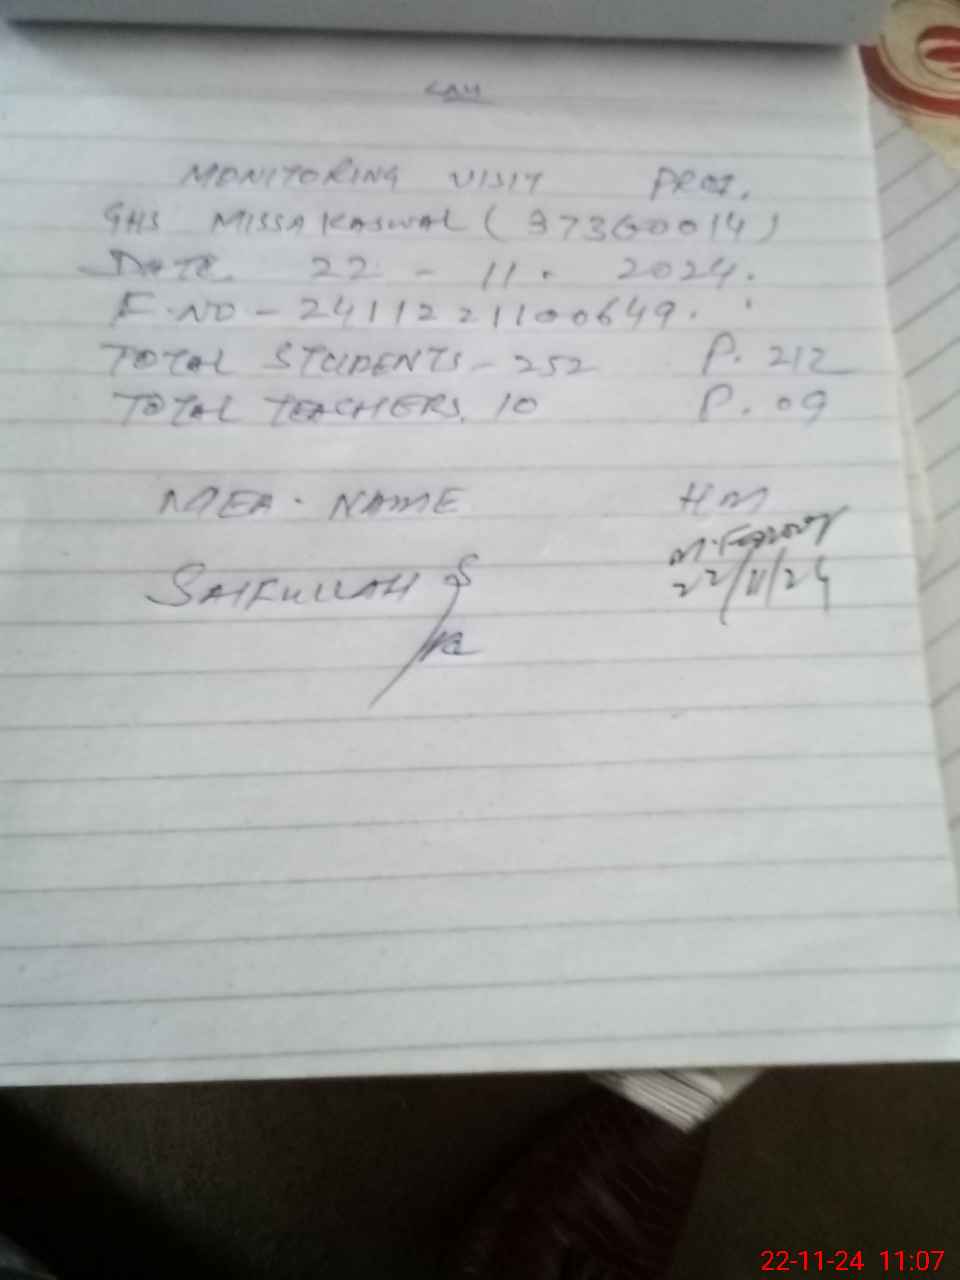 MONITORING VISIT PROF.
GHS MISSA KASWAL (37360014)
DATE 22 - 11 . 2024.
F.NO - 2411221100649.
TOTAL STUDENTS - 252 P. 212
TOTAL TEACHERS. 10 P. 09
MEA. NAME HM
SAIFULLAH
22/11/24
22-11-24 11:07